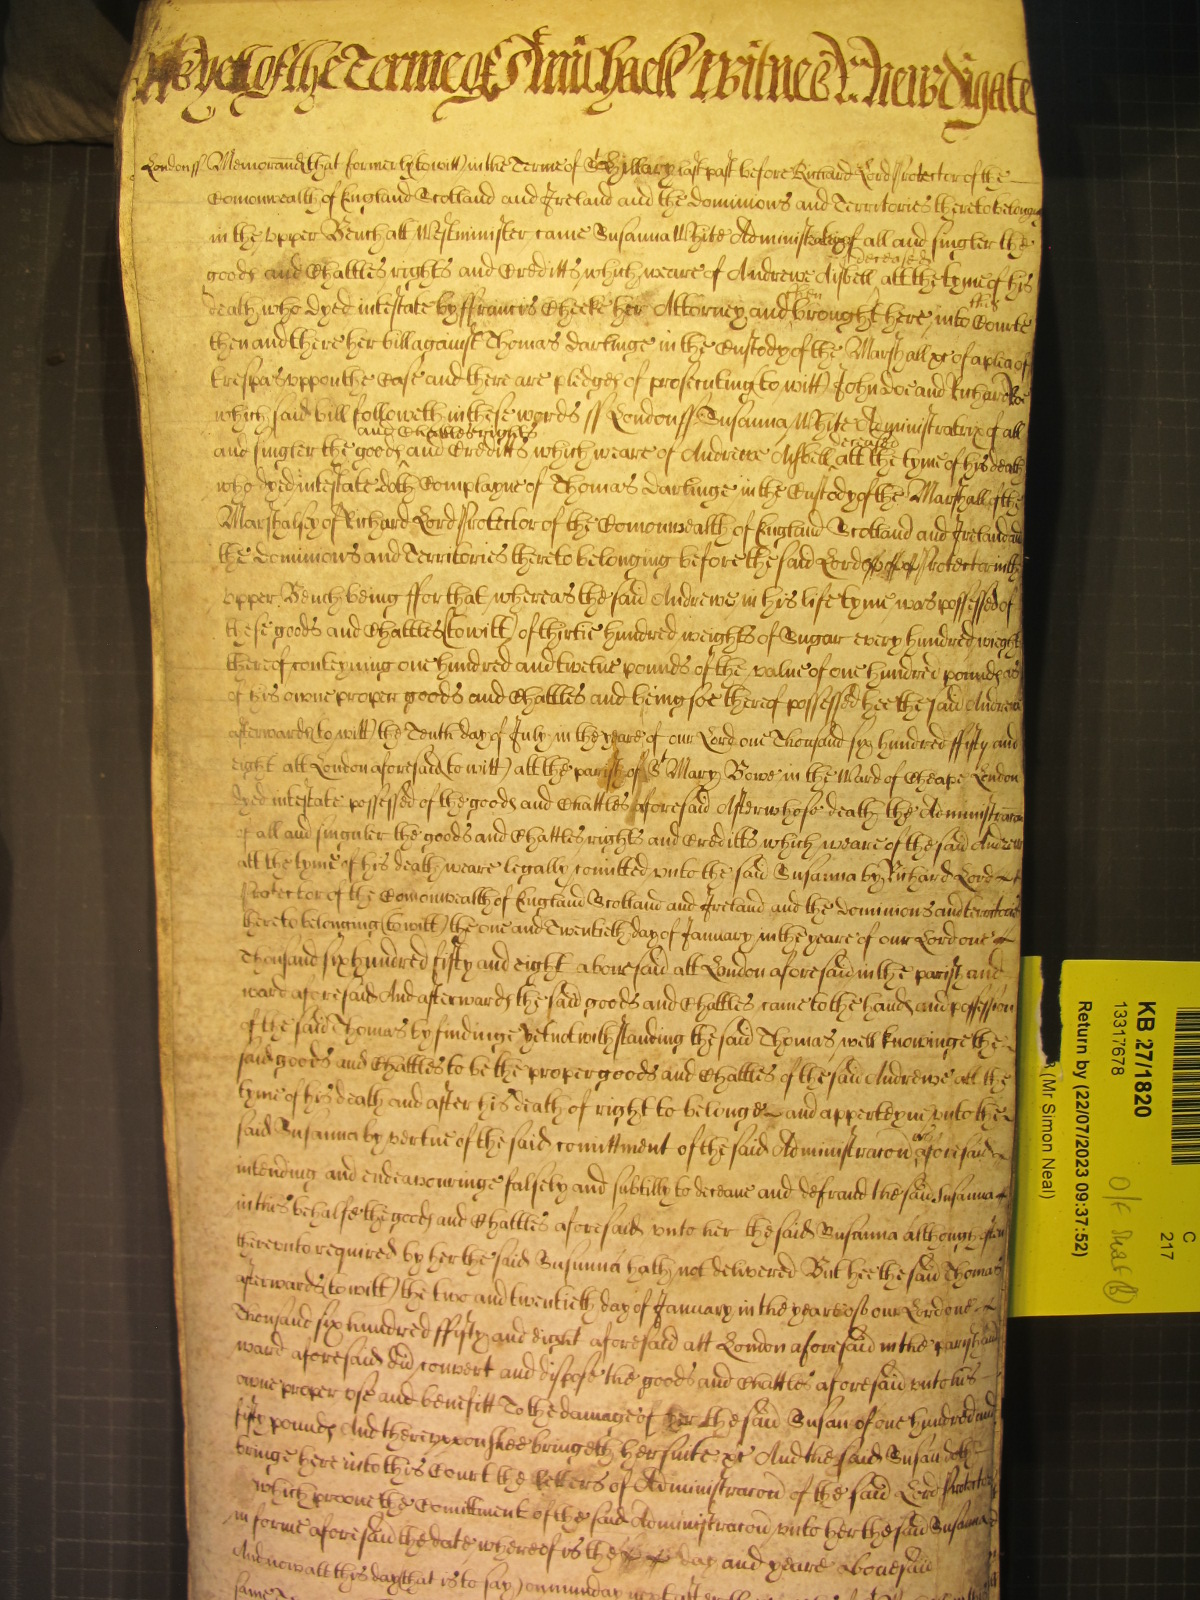 As yett of the Terme of St Michaell Witnes R: Newdigate
London ss Memorand that formerly (to witt) in the Terme of St Hillary last past before Richard Lord Protector of the
Comonwealth of England Scotland and Ireland and the dominions and Territories thereto belonging
in the Upper Bench att Westminster came Susanna White Administratrix of all and singler the
goods and Chattles rights and Creditts which weare of Andrewe deceased att the tyme of his
death who dyed intestate by ffrancis Cheeke her Attorney and then brought here into this Courte
then and there her bill against Thomas Darlinge in the Custody of the Marshall &c of a plea of
trespas uppon the Case and there are pledges of prosecuting (to witt) John Doe and Richard Roe
which said bill followeth in these words ss London ss Susanna White Administratrix of all
and singler the goods and Chattles rights and Creditts which weare of Andrewe deceased att the tyme of his death
who dyed intestate doth Complayne of Thomas Darlinge in the Custody of the Marshall of the
Marshalsey of Richard Lord Protector of the Comonwealth of England Scotland and Ireland and
the Dominions and Territories thereto belonging before the said Lord Protector in the
upper Bench being ffor that whereas the said Andrewe in his life tyme was possessed of
these goods and Chattles (to witt) of thirtie hundred weights of Sugar every hundred weight
thereof conteyning one hundred and twelve pounds of the value of one hundred pounds as
of his owne proper goods and Chattles and being soe thereof possessed hee the said Andrewe
afterwards (to witt) the Tenth day of July in the yeare of our Lord one Thousand six hundred ffifty and
eight att London aforesaid (to witt) att the parish of St Mary Bowe in the Ward of Cheape London
dyed intestate possessed of the goods and Chattles aforesaid After whose death the Administracon
of all and singuler the goods and Chattles rights and Creditts which weare of the said Andrew
att the tyme of his death weare legally comitted unto the said Susanna by Richard Lord
Protector of the Comonwealth of England Scotland and Ireland and the dominions and territories
thereto belonging (to witt) the one and Twentieth day of January in the yeare of our Lord one
Thousand six hundred fifty and eight abovesaid att London aforesaid in the parish and
ward aforesaid And afterwards the said goods and Chattles came to the hands and possession
of the said Thomas by findinge yet notwithstanding the said Thomas well knowinge the
said goods and Chattles to be the proper goods and Chattles of the said Andrewe att the
tyme of his death and after his death of right to belonge and apperteyne unto the
said Susanna by vertue of the said comittment of the said Administracon aforesaid
intending and endeavouringe falsely and subtilly to deceave and defraud the said Susanna
in this behalfe the goods and Chattles aforesaid unto her the said Susanna although often
thereunto required by her the said Susanna hath not delivered But hee the said Thomas
afterwards (to witt) the two and twentieth day of January in the yeare of our Lord one
Thousand six hundred ffifty and eight aforesaid att London aforesaid in the parish and
ward aforesaid did convert and dispose the goods and Chattles aforesaid unto his
owne proper use and benefitt To the damage of her the said Susan of one hundred and
fifty pounds And thereuppon shee bringeth her suite &c And the said Susan doth
bringe here into this Court the letters of Administracon of the said Lord Protector
which prove the Comittment of the said Administracon unto her the said Susanna
in forme aforesaid the date whereof is the day and yeare abovesaid
And now att this day that is to say) on munday next after
same
KB 27/1820
13317678
Return by (22/07/2023 09:37:52)
(Mr Simon Neal)
C
217